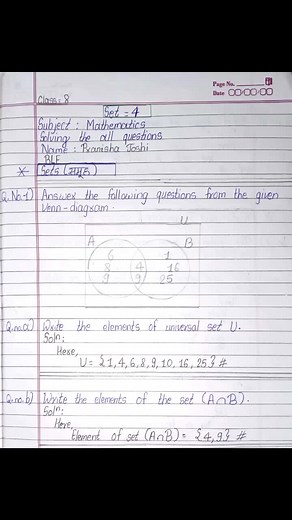 Page No.
Date
Class: 8
Set = 4
Subject : Mathematics
Solving the all questions
Name : Pranisha Joshi
BLF
* Sets (समूह)
Q.No-1) Answer the following questions from the given
Venn-diagram.
U
A B
6 1
8 4 16
9 9 25
Q.no.a) Write the elements of universal set U.
Solⁿ:
Here,
U = {1,4,6,8,9,10,16,25} #
Q.no.b) Write the elements of the set (A∩B).
Solⁿ:
Here,
Element of set (A∩B) = {4,9} #